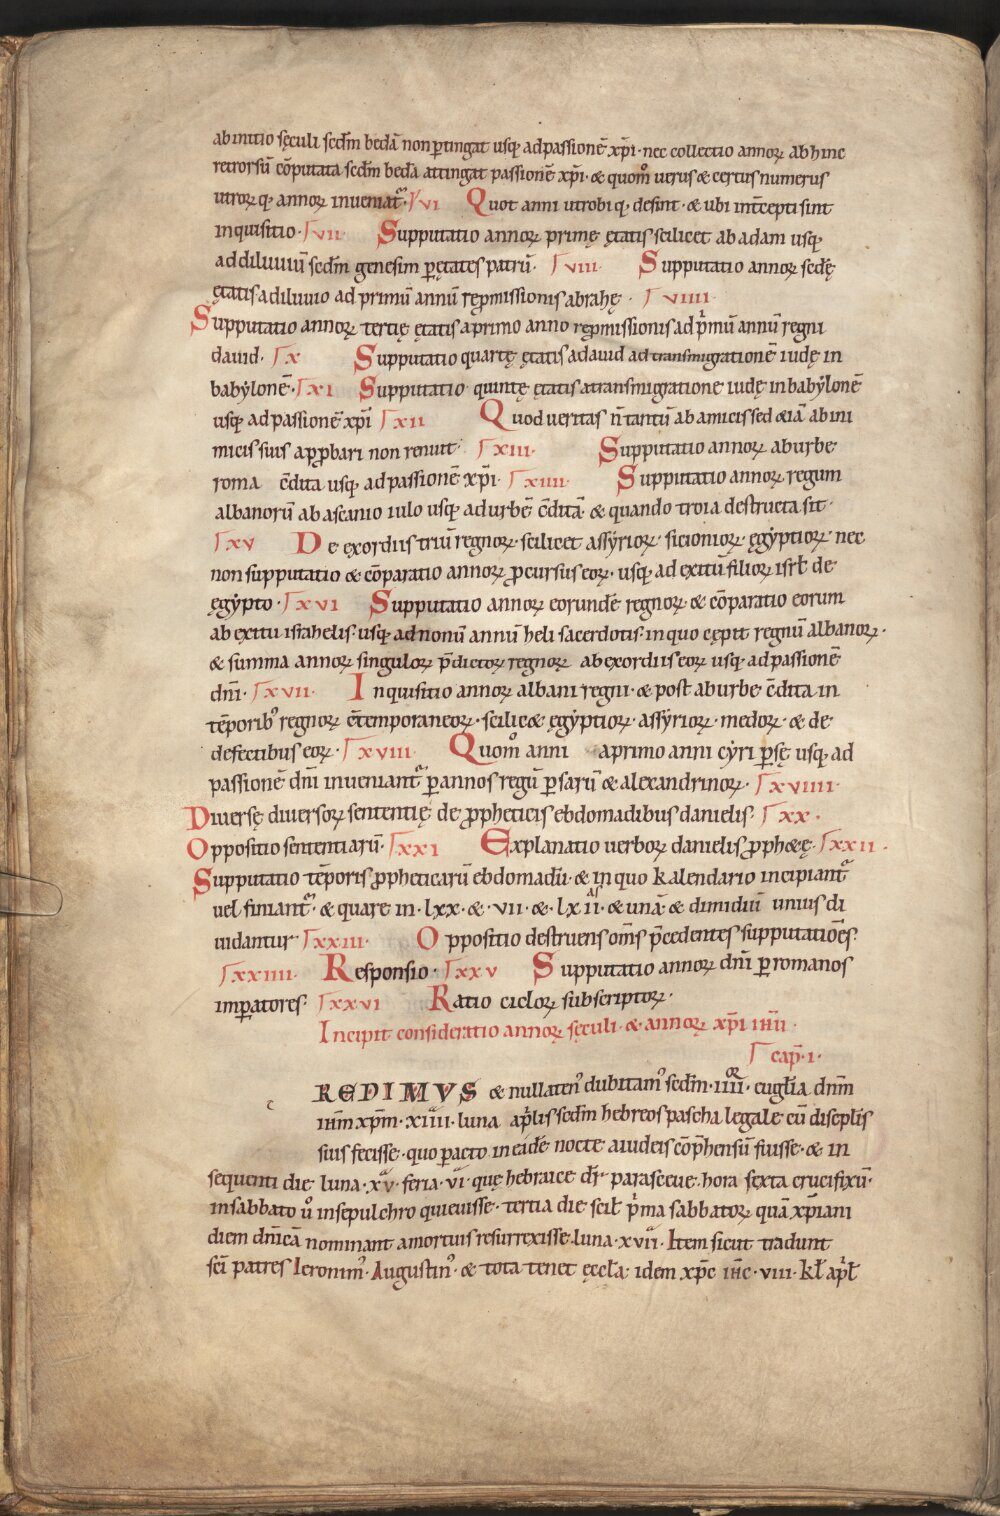 ab initio sęculi scd̄m bedā non p̄tingat usq; ad passionē xp̄i· nec collectio annoꝝ ab hinc
retrorsū cōputata scd̄m bedā attingat passionē xp̄i· & quom̊ uerus & certus numerus
utroꝝq; annoꝝ inueniat᷑· VI Quot anni utrobiq; desint· & ubi int̄cepti sint
inquisitio· VII· Supputatio annoꝝ primę ętatis scilicet ab adam usq;
ad diluuiū scd̄m genesim p̄ ętates patrū· VIII· Supputatio annoꝝ scd̄ę
ętatis a diluuio ad primū annū rep̄missionis abrahę· VIIII·
Supputatio annoꝝ tertię ętatis a primo anno rep̄missionis ad p̄mū annū regni
dauid· X Supputatio quartę ętatis a dauid ad transmigrationē iudę in
babẏlonē· XI Supputatio quintę ętatis a transmigratione iudę in babẏlonē
usq; ad passionē xp̄i XII Quod ueritas n̄ tantū ab amicis sed &iā ab ini
micis suis app̄bari non renuit· XIII· Supputatio annoꝝ ab urbe
roma c̄dita usq; ad passionē xp̄i· XIIII· Supputatio annoꝝ regum
albanorū ab ascanio iulo usq; ad urbē c̄ditā· & quando troia destructa sit·
XV De exordiis triū regnoꝝ· scilicet assẏrioꝝ· sicionioꝝ· ęgẏptioꝝ· nec
non supputatio & cōparatio annoꝝ p̄cursus eoꝝ· usq; ad exitū filioꝝ isrł de
ęgẏpto· XVI Supputatio annoꝝ eorundē regnoꝝ· & cōparatio eorum
ab exitu israhelis· usq; ad nonū annū heli sacerdotis· in quo cępit regnū albanoꝝ·
& summa annoꝝ singuloꝝ p̄dictoꝝ regnoꝝ ab exordiis eoꝝ usq; ad passionē
dn̄i· XVII· Inquisitio annoꝝ albani regni· & post ab urbe c̄dita in
tēporib᷒ regnoꝝ c̄temporaneoꝝ· scilic& ęgẏptioꝝ· assẏrioꝝ· medoꝝ· & de
defectibus eoꝝ· XVIII· Quom̊ anni a primo anni cẏri p̄sę usq; ad
passionē dn̄i inueniant᷑ p̄ annos regū p̄sarū & alexandrinoꝝ· XVIIII·
Diuersę diuersoꝝ sententię de p̄pheticis ebdomadibus danielis· XX·
Oppositio sententiarū· XXI Explanatio uerboꝝ danielis p̄ph&ę· XXII·
Supputatio tēporis p̄pheticarū ebdomadū· & in quo kalendario incipiant᷑
uel finiant᷑· & quare in· lxx· &· vii· &· lxii· & unā· & dimidiū unius di
uidantur· XXIII· Oppositio destruens om̄s p̄cedentes supputatiōes·
XXIIII· Responsio· XXV Supputatio annoꝝ dn̄i p̄ romanos
imp̄atores· XXVI Ratio cicloꝝ subscriptoꝝ·
Incipit consideratio annoꝝ sęculi· & annoꝝ xp̄i iħu·
cap̄· I·
c REDIMVS & nullaten᷒ dubitam᷒ scd̄m· iiii· euglīa dn̄m
iħm xp̄m· xiiii· luna ap̄lis scd̄m hebreos pascha legale cū discipl̄is
suis fecisse· quo p̄acto in eādē nocte a iudeis cōp̄hensū fuisse· & in
sequenti die luna· xv· feria· vi· quę hebraice dr̄ parasceue· hora sexta crucifixū·
in sabbato u᷒ in sepulchro quieuisse· tertia die scił p̄ma sabbatoꝝ quā xp̄iani
diem dn̄icā nominant a mortuis resurrexisse· luna· xvii· Item sicut tradunt
sc̄i patres Ieronim᷒· Augustin᷒· & tota tenet ęccła· idem xp̄c iħc· viii· kł ap̄ł